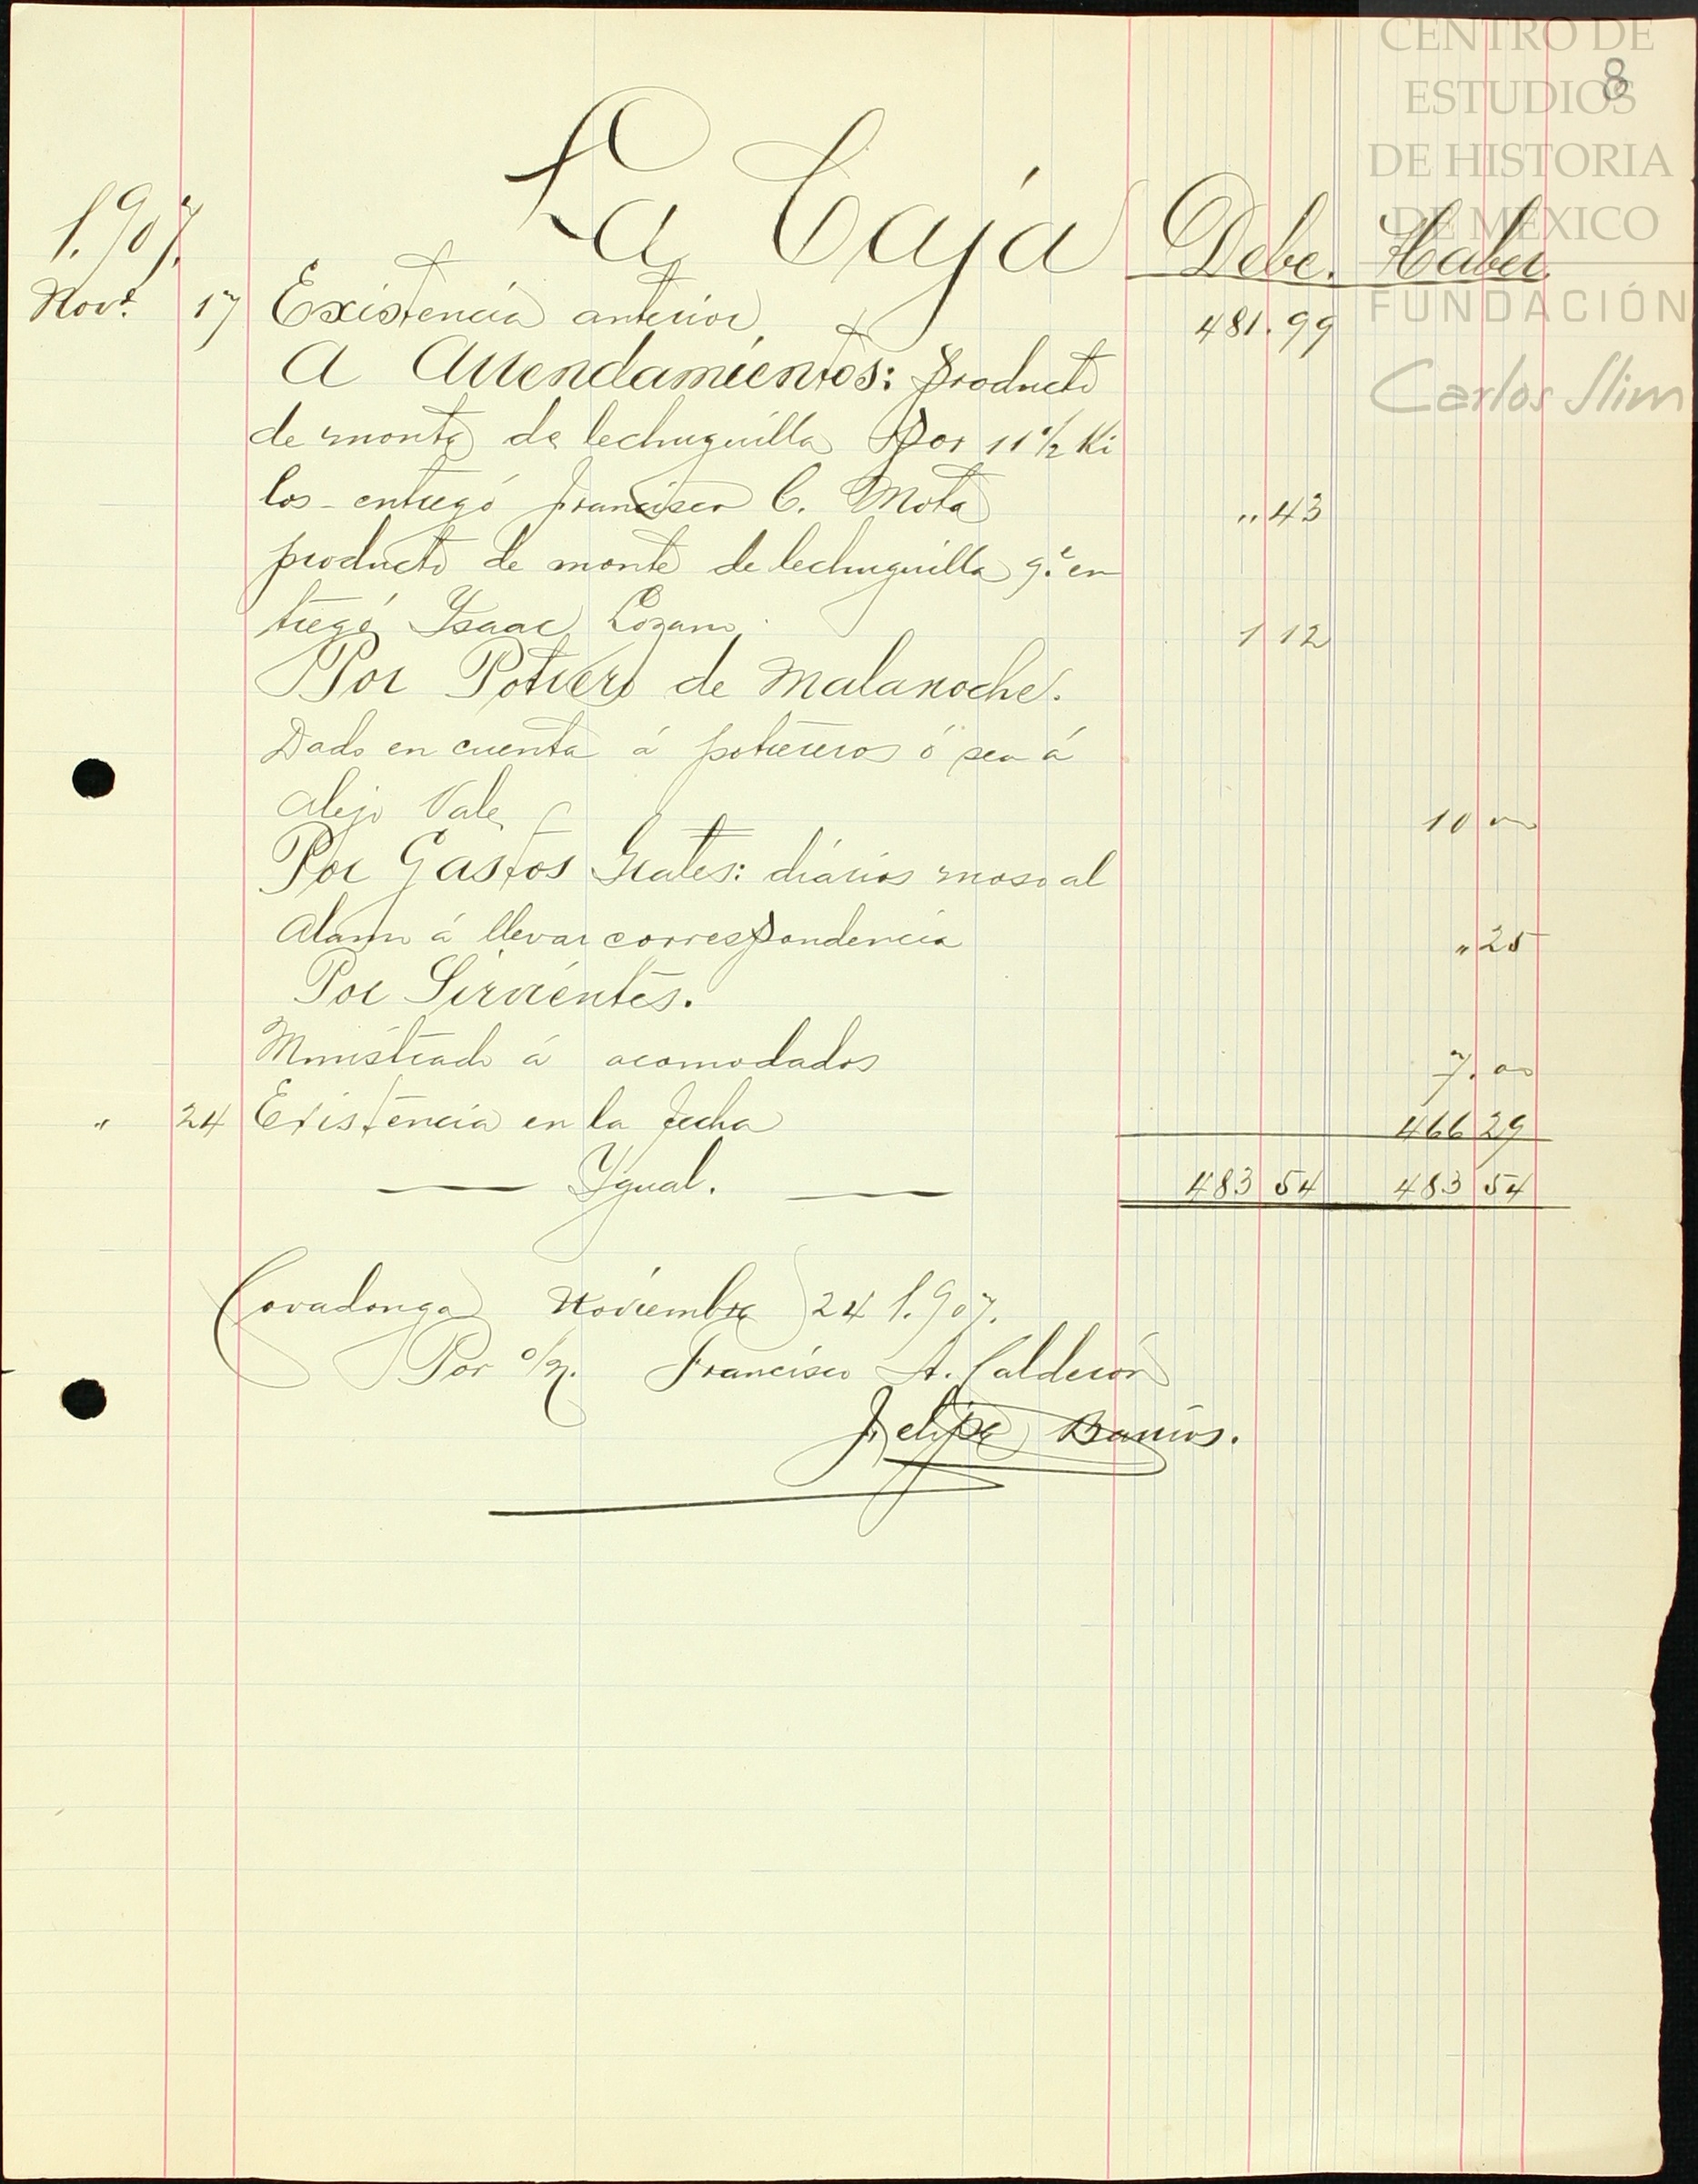 CENTRO DE
ESTUDIOS
DE HISTORIA
DE MÉXICO
FUNDACIÓN
Carlos Slim
8
1.907. La Caja Debe. Haber.
Nov.e 17 Existencia anterior 481.99
A Arrendamientos: Producto
de monte de lechuguilla Por 11 1/2 Ki
los entregó Francisco C. Mota „ 43
producto de monte de lechuguilla q.e en
tregó Ysaac Lozano. 1 12
Por Potrero de Malanoche.
Dado en cuenta á potrereros ó sea á
Alejo Vale 10 00
Por Gastos Grales: diários moso al
Alamo á llevar correspondencia „ 25
Por Sirvientes.
Ministrado á acomodados 7.00
„ 24 Existencia en la fecha 466 29
— Ygual. — 483 54 483 54
Covadonga Noviembre 24 1.907.
Por o/n. Francisco A. Calderón
Felipe Barrios.